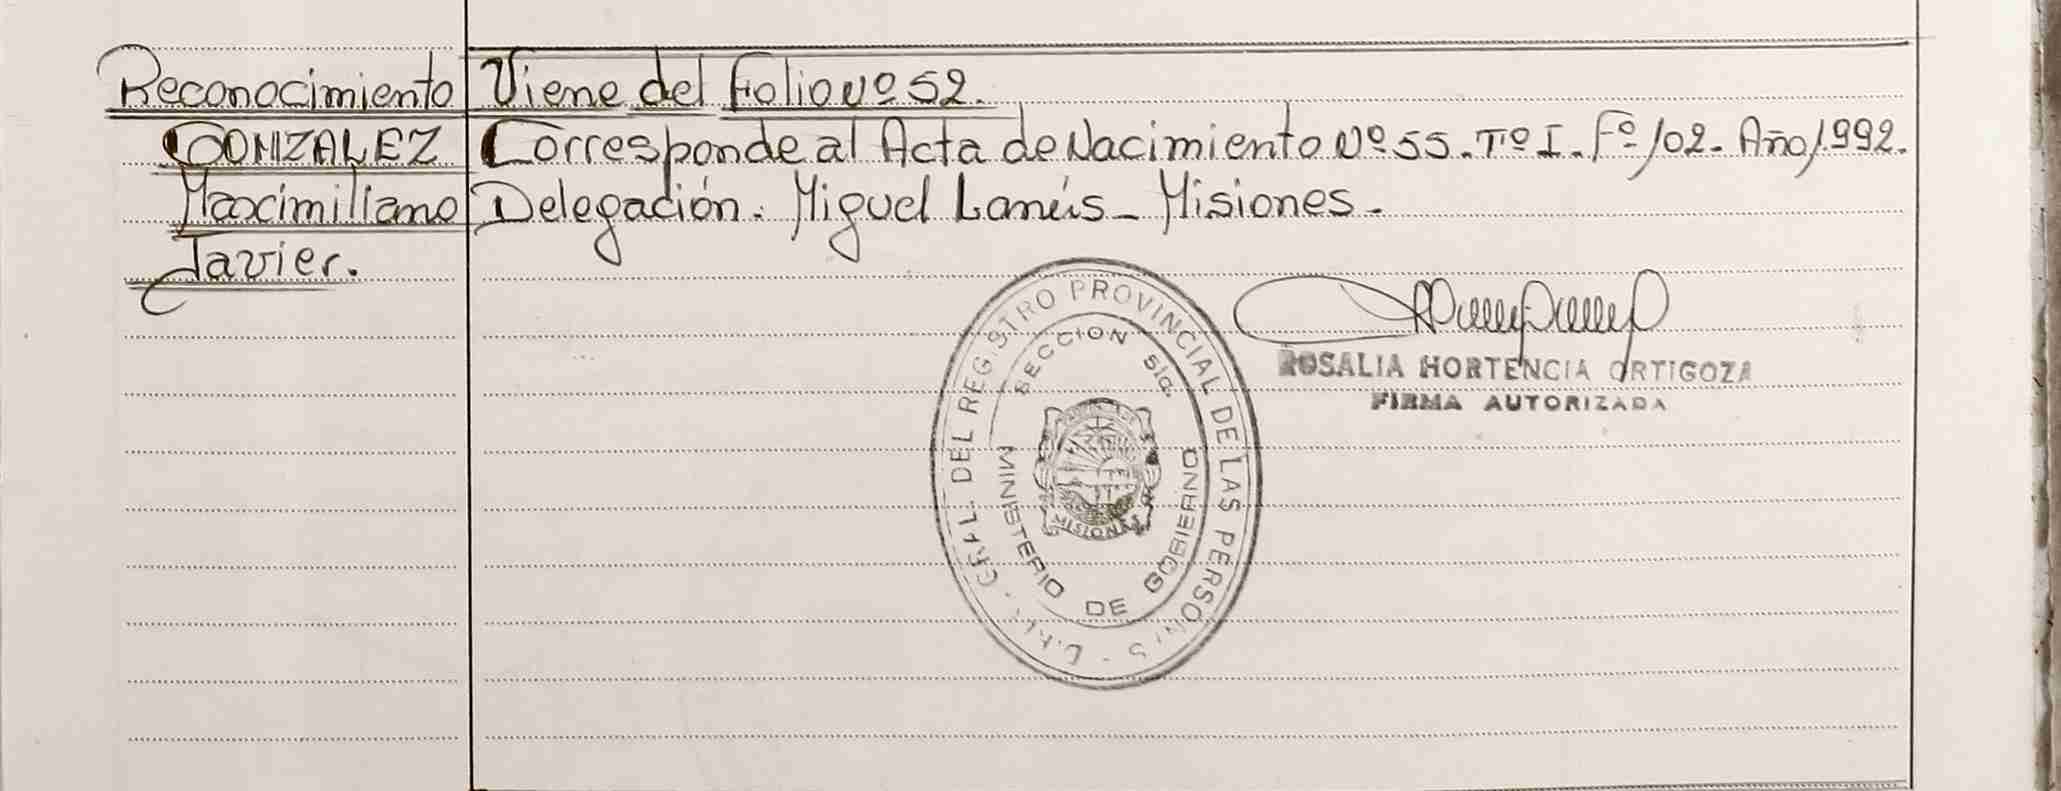 Reconocimiento
GONZALEZ
Maximiliano
Javier.
Viene del Folio Nº 52.
Corresponde al Acta de Nacimiento Nº 55. Tº I. Fº 102. Año 1992.
Delegación. Miguel Lanús - Misiones.
ROSALIA HORTENCIA ORTIGOZA
FIRMA AUTORIZADA
GRAL. DEL REGISTRO PROVINCIAL DE LAS PERSONAS
SECCION
MINISTERIO DE GOBIERNO
MISIONES